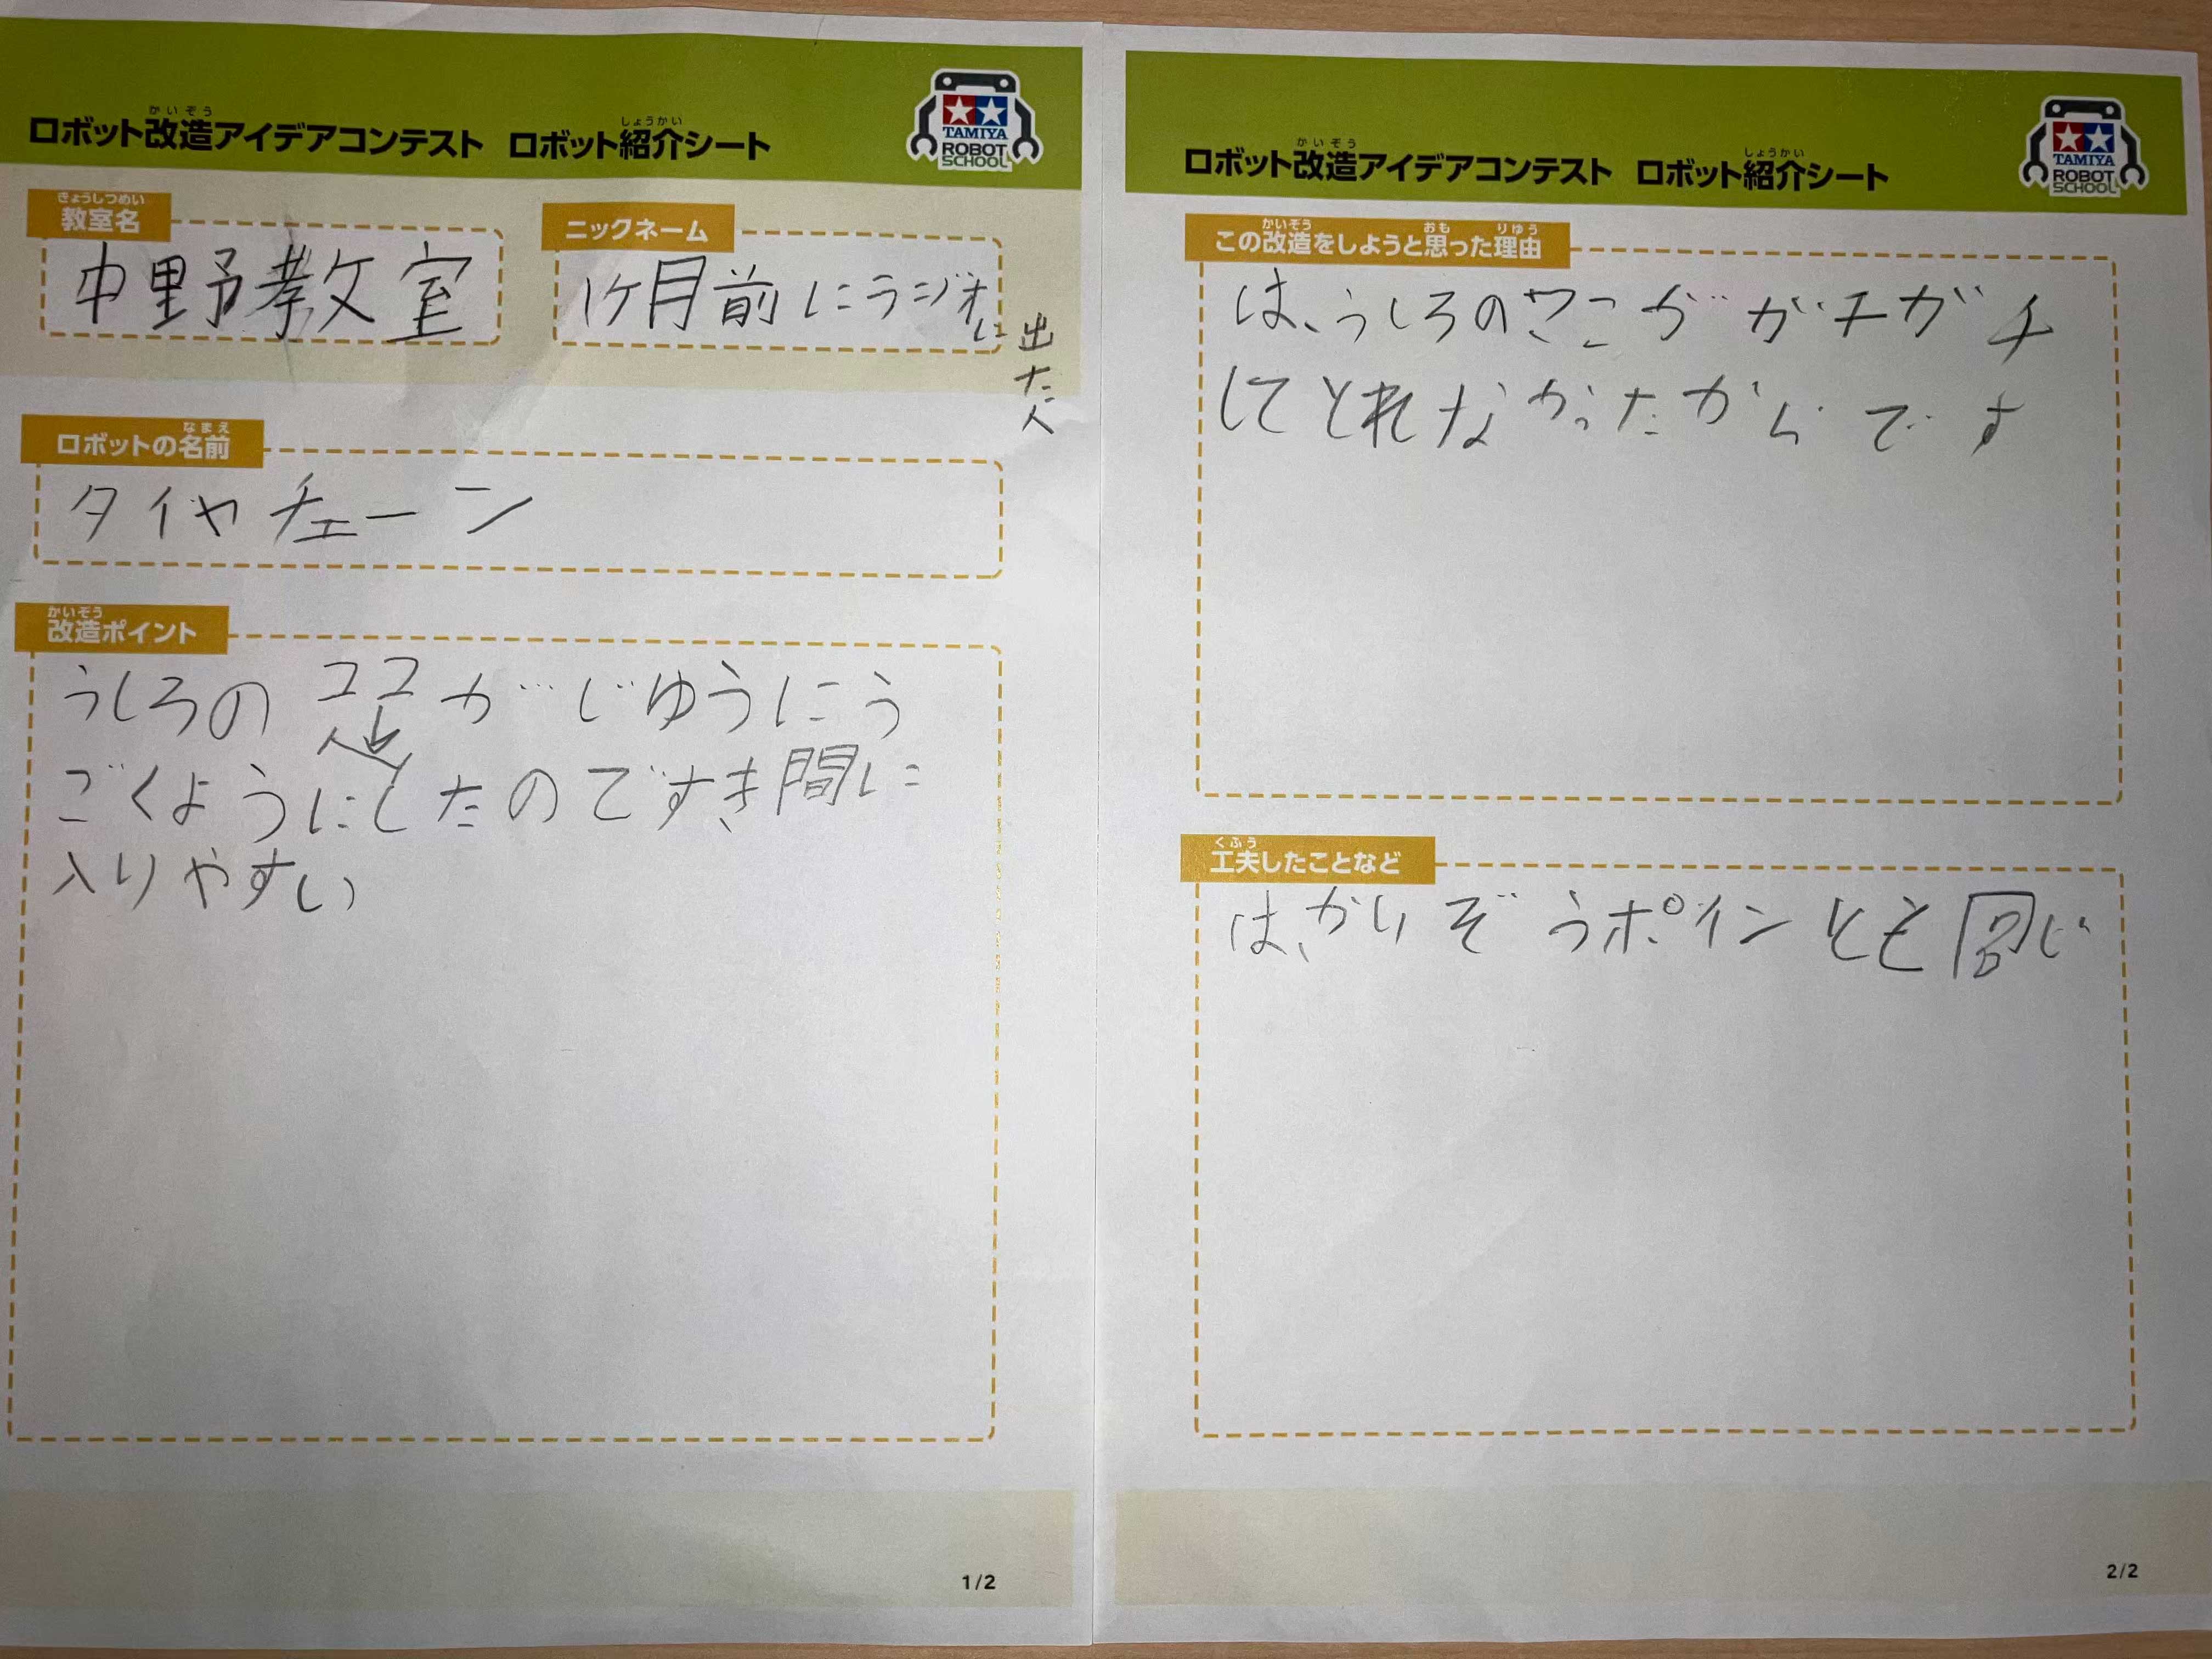 ロボット改造アイデアコンテスト ロボット紹介シート
かいぞう
しょうかい
TAMIYA
ROBOT
SCHOOL
きょうしつめい
教室名
中野教室
ニックネーム
1ヶ月前にラジオに
出た人
なまえ
ロボットの名前
タイヤチェーン
かいぞう
改造ポイント
うしろのココがじゆうにう
ごくようにしたのですき間に
入りやすい
1/2
ロボット改造アイデアコンテスト ロボット紹介シート
かいぞう
しょうかい
TAMIYA
ROBOT
SCHOOL
かいぞう おも りゆう
この改造をしようと思った理由
は、うしろの こがガチガチ
してとれなかったからです
くふう
工夫したことなど
は、かいぞうポイントとも同じ
2/2